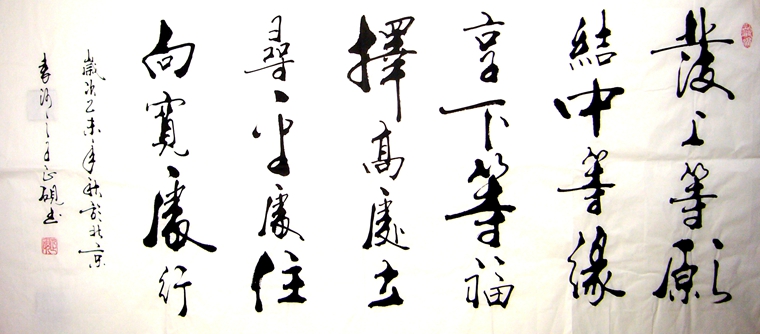 發上等願
結中等緣
享下等福
擇高處立
尋平處住
向寬處行
歲次乙未年秋於北京
正硯書